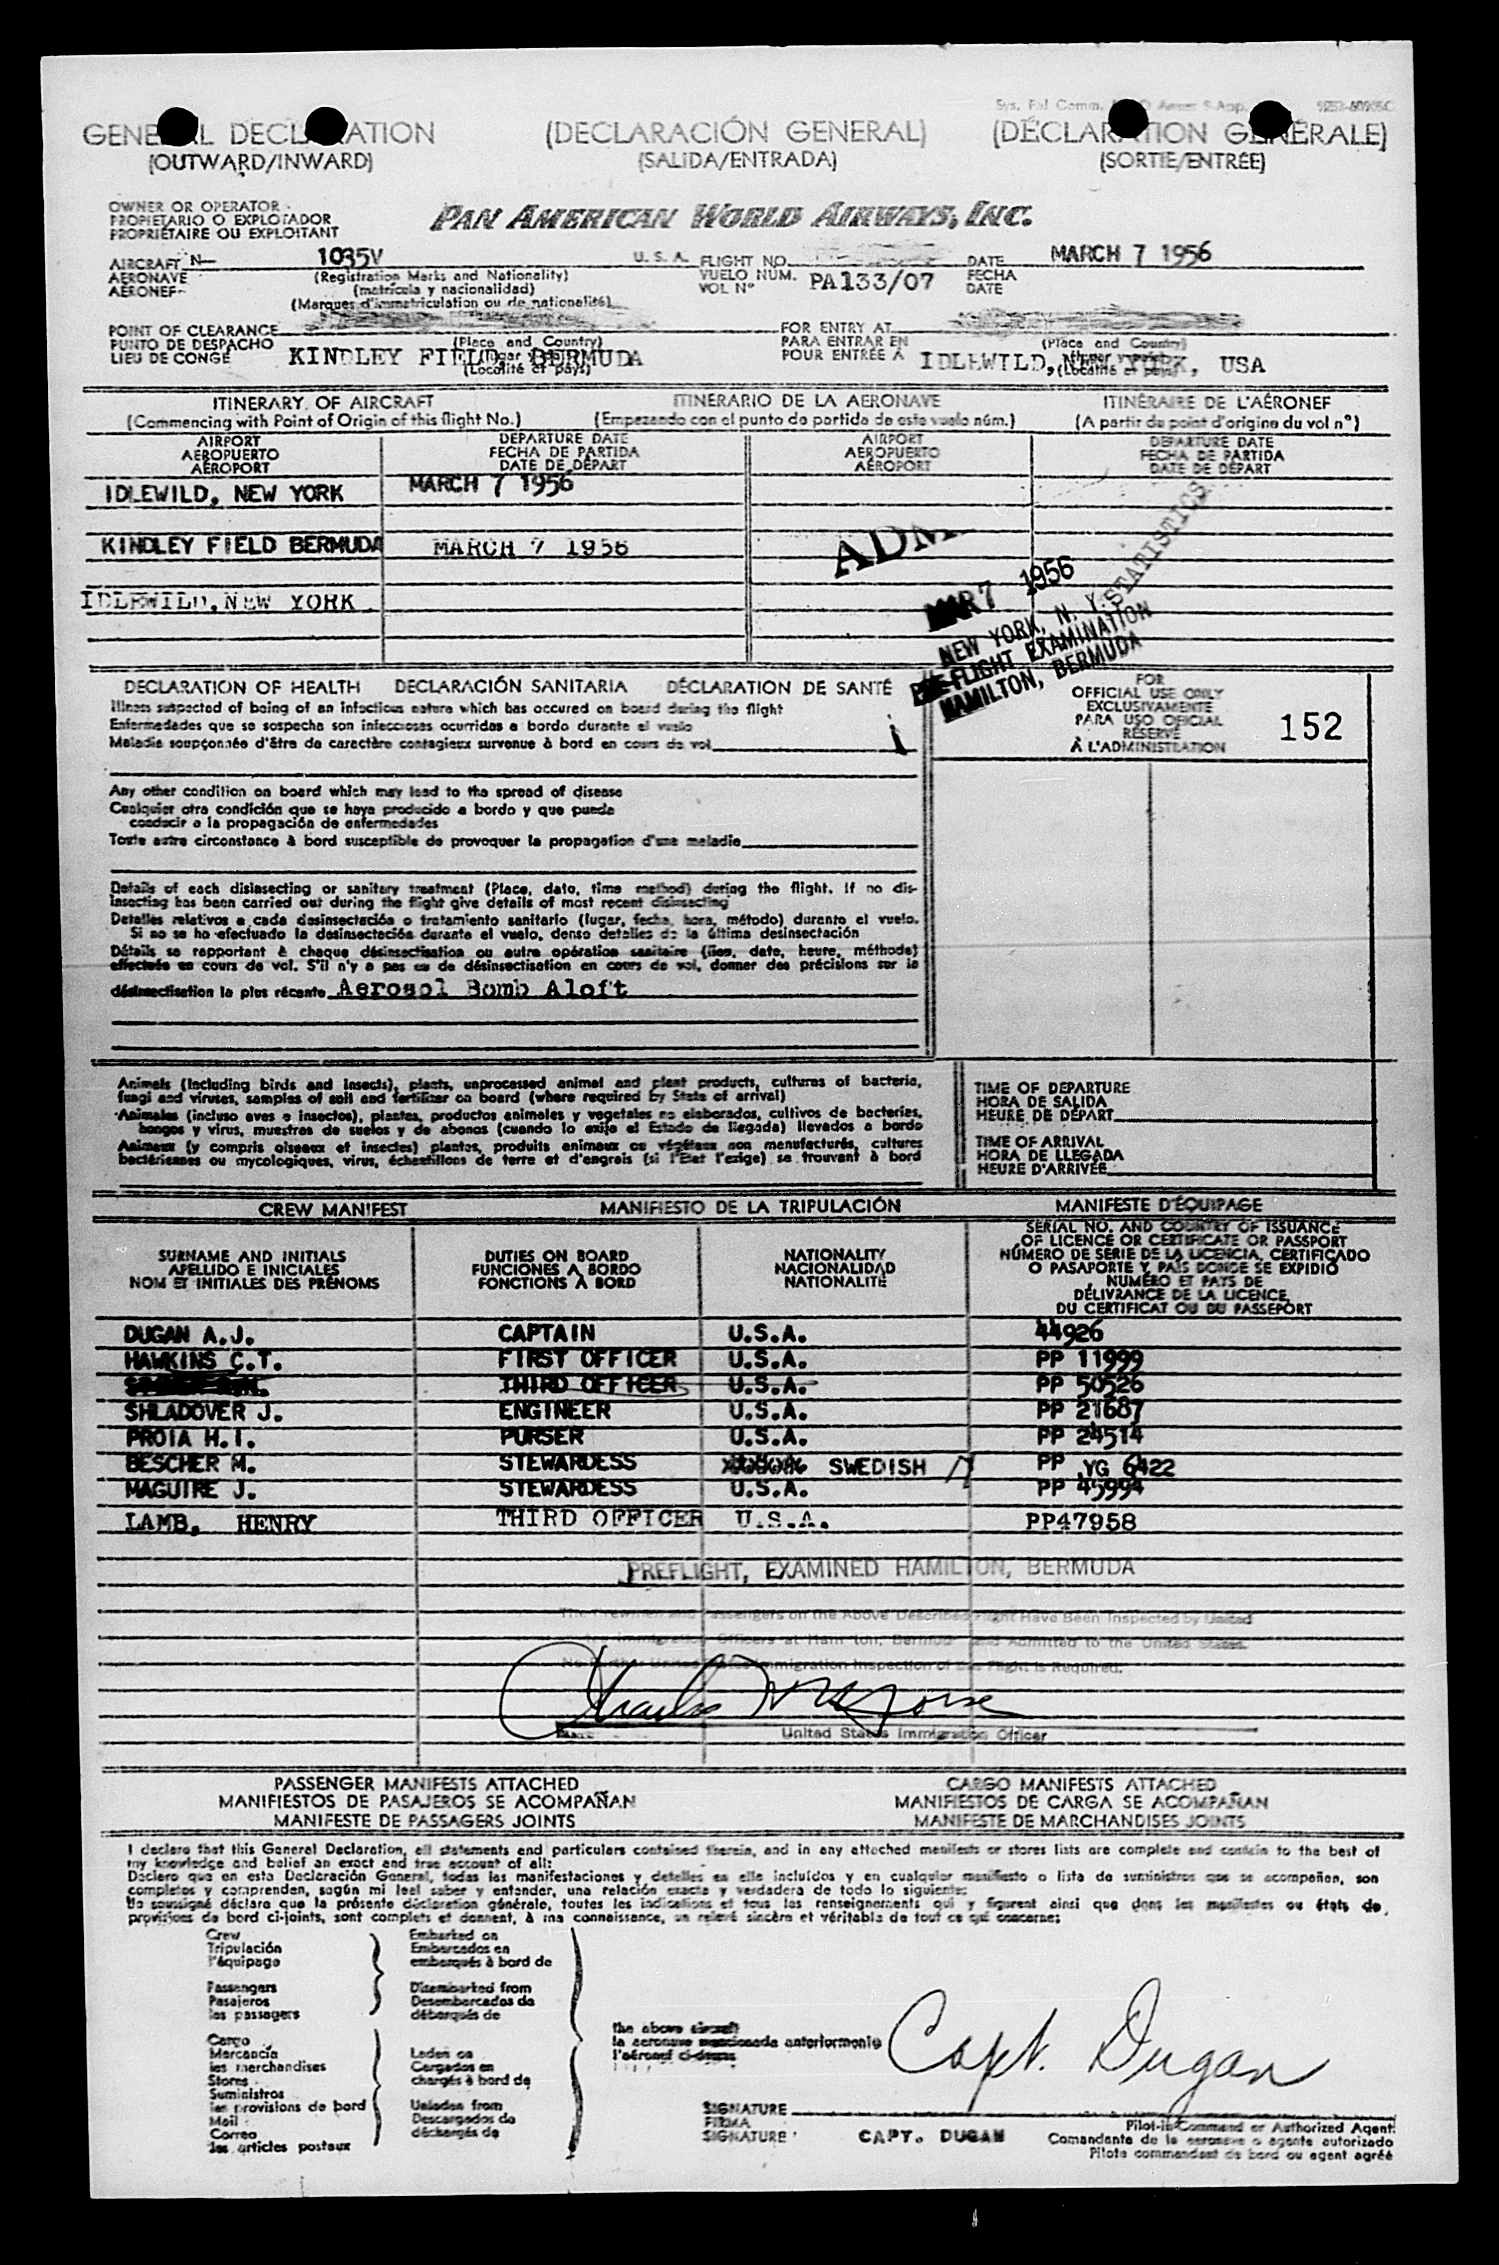 GENERAL DECLARATION (DECLARACIÓN GENERAL) (DÉCLARATION GÉNÉRALE)
(OUTWARD/INWARD) (SALIDA/ENTRADA) (SORTIE/ENTRÉE)
OWNER OR OPERATOR
PROPIETARIO O EXPLOTADOR
PROPRIÉTAIRE OU EXPLOITANT
PAN AMERICAN WORLD AIRWAYS, INC.
AIRCRAFT N— 1035V U. S. A. FLIGHT NO. DATE MARCH 7 1956
AERONAVE (Registration Marks and Nationality) VUELO NÚM. PA133/07 FECHA
AÉRONEF (matrícula y nacionalidad) VOL Nº DATE
(Marques d'immatriculation ou de nationalité)
POINT OF CLEARANCE FOR ENTRY AT
PUNTO DE DESPACHO (Place and Country) PARA ENTRAR EN (Place and Country)
LIEU DE CONGÉ KINDLEY FIELD, BERMUDA POUR ENTRÉE À IDLEWILD, NEW YORK, USA
(Localité et pays)
ITINERARY OF AIRCRAFT ITINERARIO DE LA AERONAVE ITINÉRAIRE DE L'AÉRONEF
(Commencing with Point of Origin of this flight No.) (Empezando con el punto de partida de este vuelo núm.) (A partir du point d'origine du vol nº)
AIRPORT DEPARTURE DATE AIRPORT DEPARTURE DATE
AEROPUERTO FECHA DE PARTIDA AEROPUERTO FECHA DE PARTIDA
AÉROPORT DATE DE DÉPART AÉROPORT DATE DE DÉPART
IDLEWILD, NEW YORK MARCH 7 1956
KINDLEY FIELD BERMUDA MARCH 7 1956
IDLEWILD, NEW YORK
MAR 7 1956
NEW YORK, N. Y. STATISTICS
PRE-FLIGHT EXAMINATION
HAMILTON, BERMUDA
DECLARATION OF HEALTH DECLARACIÓN SANITARIA DÉCLARATION DE SANTÉ
Illness suspected of being of an infectious nature which has occured on board during the flight
Enfermedades que se sospecha son infecciosas ocurridas a bordo durante el vuelo
Maladie soupçonnée d'être de caractère contagieux survenue à bord en cours de vol
FOR
OFFICIAL USE ONLY
EXCLUSIVAMENTE
PARA USO OFICIAL
RÉSERVÉ
À L'ADMINISTRATION
152
Any other condition on board which may lead to the spread of disease
Cualquier otra condición que se haya producido a bordo y que pueda
conducir a la propagación de enfermedades
Toute autre circonstance à bord susceptible de provoquer la propagation d'une maladie
Details of each disinsecting or sanitary treatment (Place, date, time method) during the flight. If no dis-
insecting has been carried out during the flight give details of most recent disinsecting
Detalles relativos a cada desinsectación o tratamiento sanitario (lugar, fecha, hora, método) durante el vuelo.
Si no se ha efectuado la desinsectación durante el vuelo, dense detalles de la última desinsectación
Détails se rapportant à chaque désinsectisation ou autre opération sanitaire (lieu, date, heure, méthode)
effectuée en cours de vol. S'il n'y a pas eu de désinsectisation en cours de vol, donner des précisions sur la
désinsectisation la plus récente Aerosol Bomb Aloft
Animals (Including birds and insects), plants, unprocessed animal and plant products, cultures of bacteria,
fungi and viruses, samples of soil and fertilizer on board (where required by State of arrival)
Animales (incluso aves e insectos), plantas, productos animales y vegetales no elaborados, cultivos de bacterias,
hongos y virus, muestras de suelos y de abonos (cuando lo exija el Estado de llegada) llevados a bordo
Animaux (y compris oiseaux et insectes) plantes, produits animaux ou végétaux non manufacturés, cultures
bactériennes ou mycologiques, virus, échantillons de terre et d'engrais (si l'État l'exige) se trouvant à bord
TIME OF DEPARTURE
HORA DE SALIDA
HEURE DE DÉPART
TIME OF ARRIVAL
HORA DE LLEGADA
HEURE D'ARRIVÉE
CREW MANIFEST MANIFIESTO DE LA TRIPULACIÓN MANIFESTE D'ÉQUIPAGE
SURNAME AND INITIALS
APELLIDO E INICIALES
NOM ET INITIALES DES PRÉNOMS
DUTIES ON BOARD
FUNCIONES A BORDO
FONCTIONS À BORD
NATIONALITY
NACIONALIDAD
NATIONALITÉ
SERIAL NO. AND COUNTRY OF ISSUANCE
OF LICENCE OR CERTIFICATE OR PASSPORT
NÚMERO DE SERIE DE LA LICENCIA, CERTIFICADO
O PASAPORTE Y PAÍS DONDE SE EXPIDIÓ
NUMÉRO ET PAYS DE
DÉLIVRANCE DE LA LICENCE,
DU CERTIFICAT OU DU PASSEPORT
DUGAN A.J. CAPTAIN U.S.A. 44926
HAWKINS C.T. FIRST OFFICER U.S.A. PP 11999
THIRD OFFICER U.S.A. PP 50526
SHLADOVER J. ENGINEER U.S.A. PP 21687
PROIA H.I. PURSER U.S.A. PP 24514
BESCHER M. STEWARDESS SWEDISH PP YG 6422
MAGUIRE J. STEWARDESS U.S.A. PP 45994
LAMB, HENRY THIRD OFFICER U.S.A. PP47958
PREFLIGHT, EXAMINED HAMILTON, BERMUDA
The Crewmen and Passengers on the Above Described Flight Have Been Inspected by United
States Immigration Officers at Hamilton, Bermuda and Admitted to the United States.
No Further United States Immigration Inspection of this Flight is Required.
United States Immigration Officer
PASSENGER MANIFESTS ATTACHED CARGO MANIFESTS ATTACHED
MANIFIESTOS DE PASAJEROS SE ACOMPAÑAN MANIFIESTOS DE CARGA SE ACOMPAÑAN
MANIFESTE DE PASSAGERS JOINTS MANIFESTE DE MARCHANDISES JOINTS
I declare that this General Declaration, all statements and particulars contained therein, and in any attached manifests or stores lists are complete and contain to the best of
my knowledge and belief an exact and true account of all:
Declaro que en esta Declaración General, todas las manifestaciones y detalles en ella incluídos y en cualquier manifiesto o lista de suministros que se acompañen, son
completos y comprenden, según mi leal saber y entender, una relación exacta y verdadera de todo lo siguiente:
Le soussigné déclare que la présente déclaration générale, toutes les indications et tous les renseignements qui y figurent ainsi que dans les manifestes ou états de
provisions de bord ci-joints, sont complets et donnent, à ma connaissance, un relevé sincère et véritable de tout ce qui concerne:
Crew
Tripulación
l'équipage
Passengers
Pasajeros
les passagers
Embarked on
Embarcados en
embarqués à bord de
Disembarked from
Desembarcados de
débarqués de
Cargo
Mercancía
les merchandises
Stores
Suministros
les provisions de bord
Mail
Correo
les articles postaux
Laden on
Cargados en
chargés à bord de
Unladen from
Descargados de
déchargés de
the above aircraft
la aeronave mencionada anteriormente
l'aéronef ci-dessus
Capt. Dugan
SIGNATURE
FIRMA
SIGNATURE CAPT. DUGAN
Pilot-in-Command or Authorized Agent
Comandante de la aeronave o agente autorizado
Pilote commandant de bord ou agent agréé